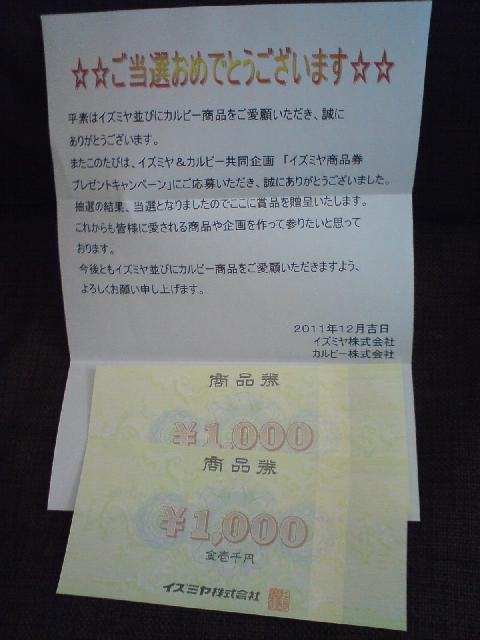 ☆☆ご当選おめでとうございます☆☆
平素はイズミヤ並びにカルビー商品をご愛顧いただき、誠に
ありがとうございます。
またこのたびは、イズミヤ＆カルビー共同企画 「イズミヤ商品券
プレゼントキャンペーン」にご応募いただき、誠にありがとうございました。
抽選の結果、当選となりましたのでここに賞品を贈呈いたします。
これからも皆様に愛される商品や企画を作って参りたいと思って
おります。
今後ともイズミヤ並びにカルビー商品をご愛顧いただきますよう、
よろしくお願い申し上げます。
2011年12月吉日
イズミヤ株式会社
カルビー株式会社
商品券
¥1,000
商品券
¥1,000
金壱千円
イズミヤ株式会社